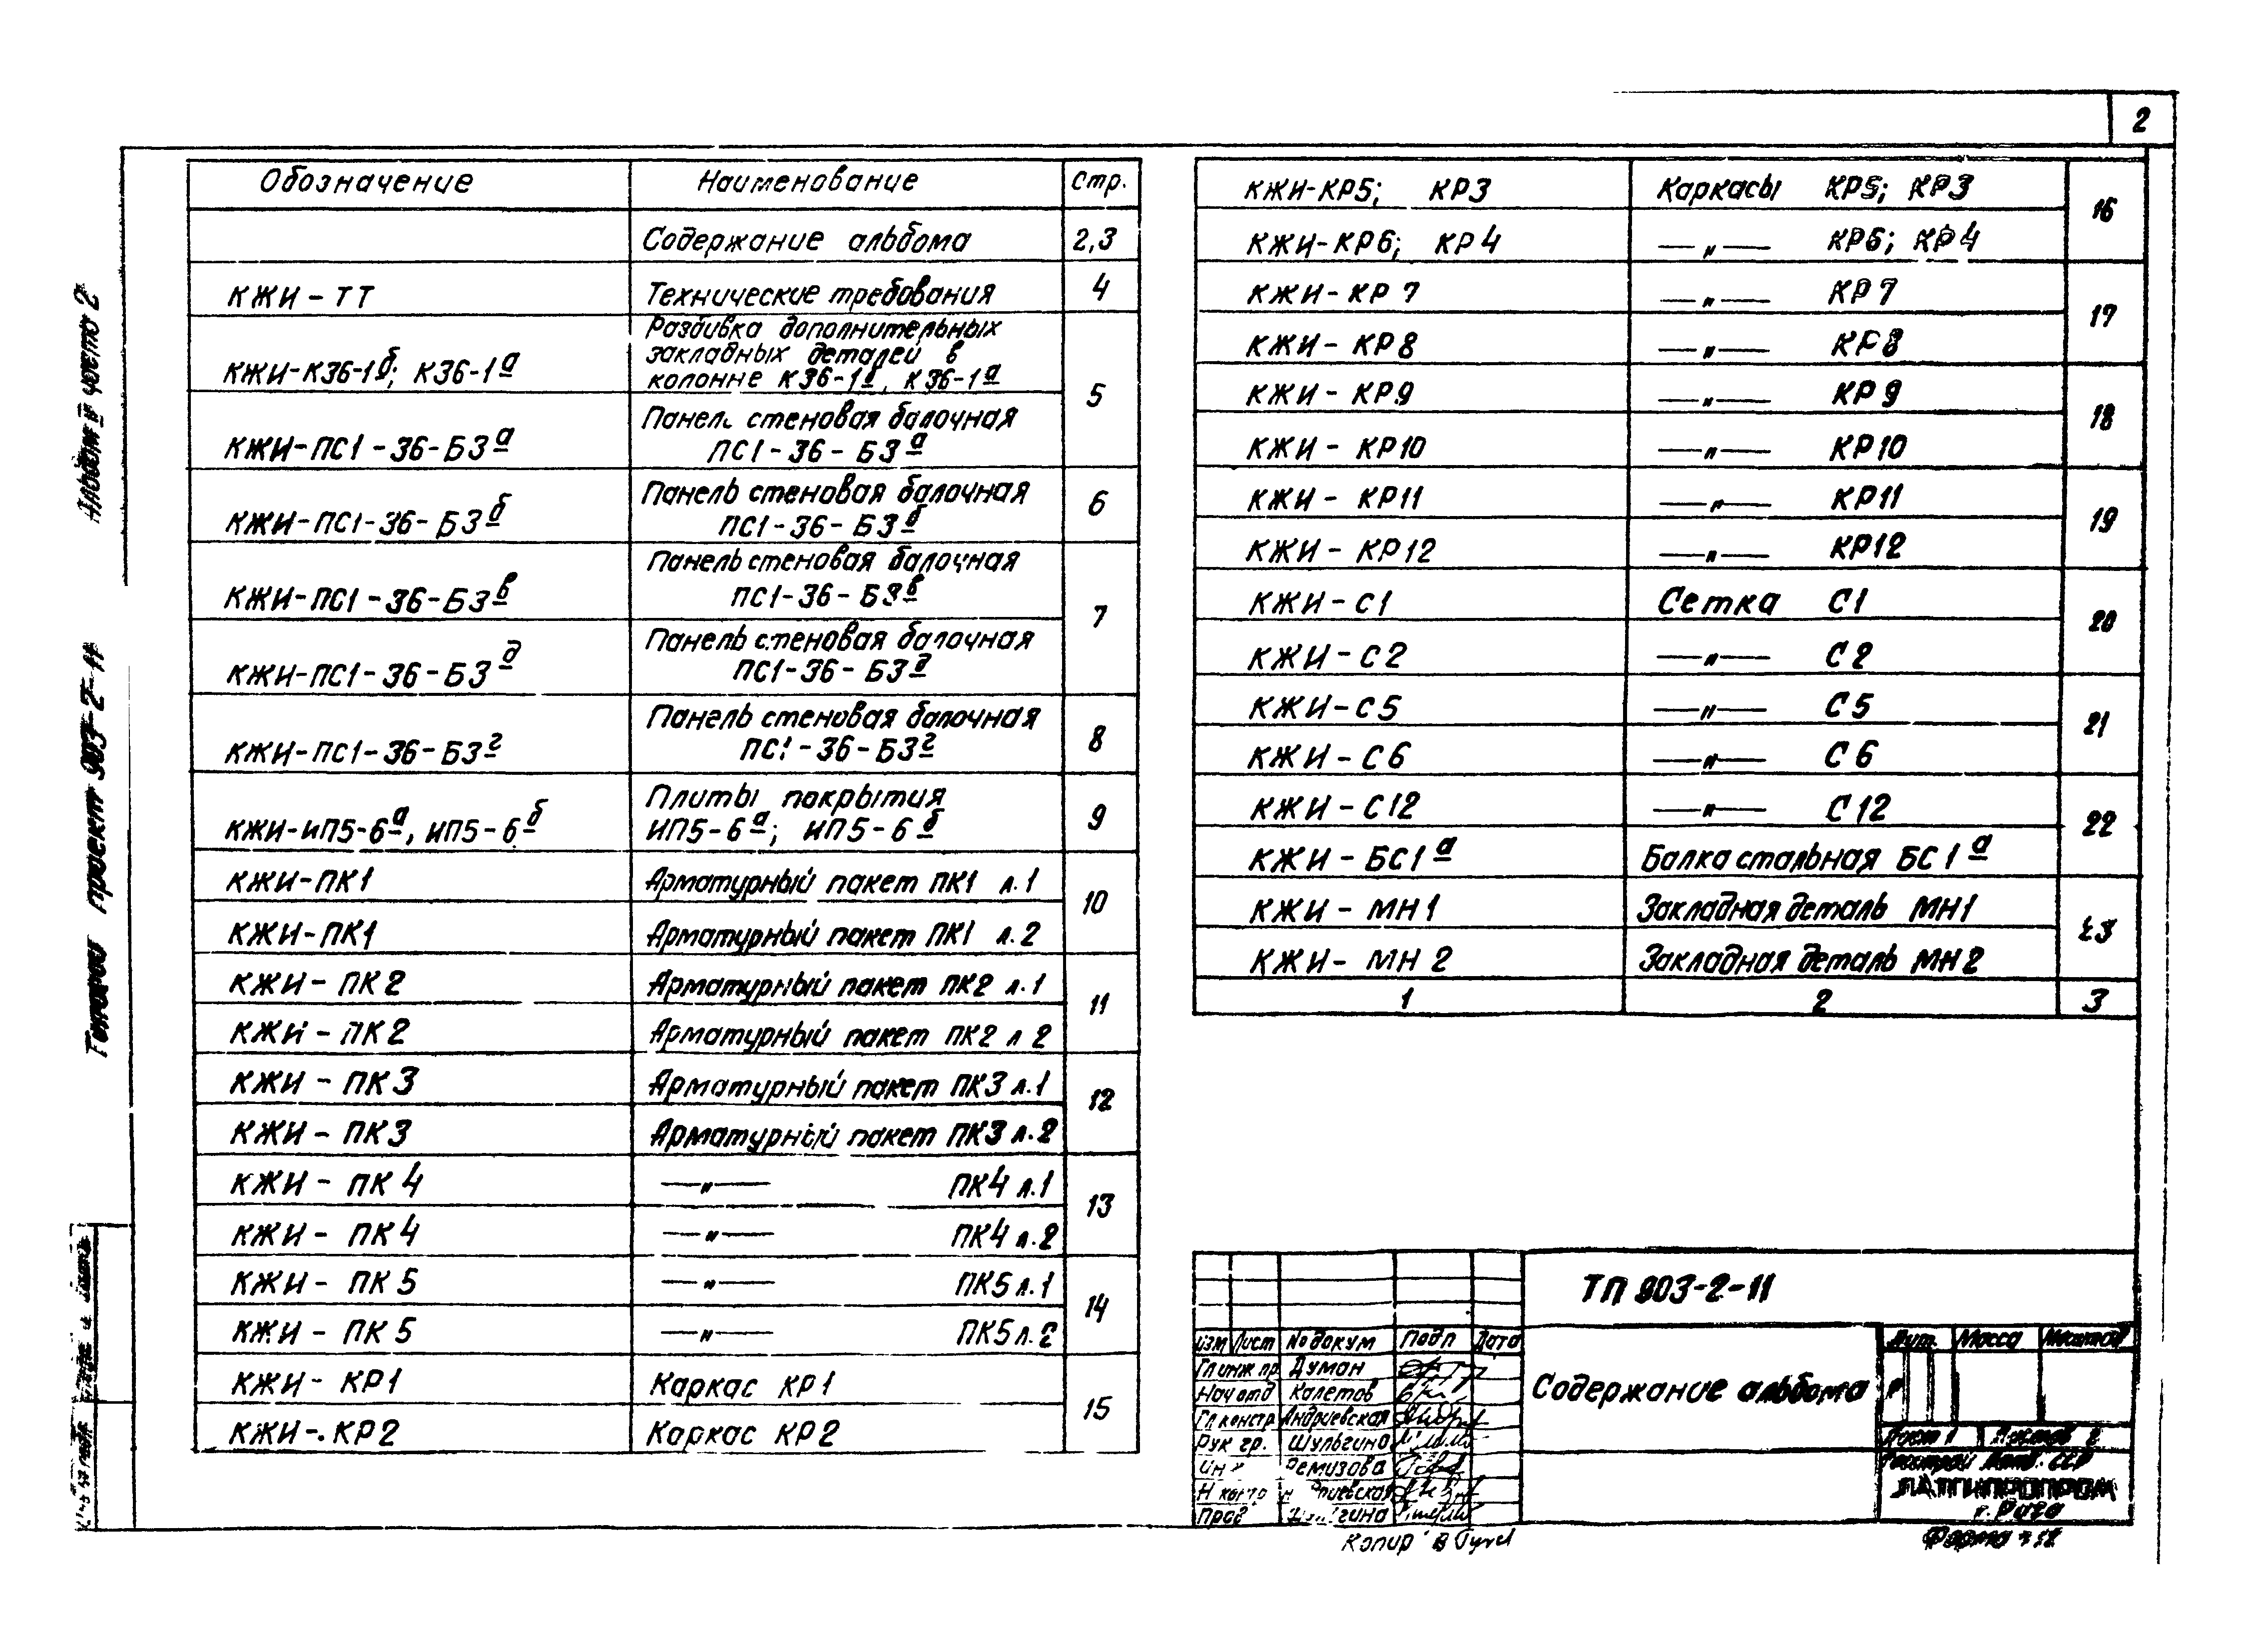 2
Обозначение Наименование Стр.
Содержание альбома 2,3
КЖИ-ТТ Технические требования 4
Разбивка дополнительных
закладных деталей в
КЖИ-К36-1б; К36-1а колонне К36-1б, К36-1а 5
Панель стеновая балочная
КЖИ-ПС1-36-Б3а ПС1-36-Б3а
Панель стеновая балочная
КЖИ-ПС1-36-Б3б ПС1-36-Б3б 6
Панель стеновая балочная
КЖИ-ПС1-36-Б3в ПС1-36-Б3в 7
Панель стеновая балочная
КЖИ-ПС1-36-Б3д ПС1-36-Б3д
Панель стеновая балочная
КЖИ-ПС1-36-Б3г ПС1-36-Б3г 8
Плиты покрытия
КЖИ-ИП5-6а, ИП5-6б ИП5-6а; ИП5-6б 9
КЖИ-ПК1 Арматурный пакет ПК1 л.1 10
КЖИ-ПК1 Арматурный пакет ПК1 л.2
КЖИ-ПК2 Арматурный пакет ПК2 л.1 11
КЖИ-ПК2 Арматурный пакет ПК2 л 2
КЖИ-ПК3 Арматурный пакет ПК3 л.1 12
КЖИ-ПК3 Арматурный пакет ПК3 л.2
КЖИ-ПК4 —"— ПК4 л.1 13
КЖИ-ПК4 —"— ПК4 л.2
КЖИ-ПК5 —"— ПК5 л.1 14
КЖИ-ПК5 —"— ПК5 л.2
КЖИ-КР1 Каркас КР1 15
КЖИ-КР2 Каркас КР2
КЖИ-КР5; КР3 Каркасы КР5; КР3 16
КЖИ-КР6; КР4 —"— КР6; КР4
КЖИ-КР7 —"— КР7 17
КЖИ-КР8 —"— КР8
КЖИ-КР9 —"— КР9 18
КЖИ-КР10 —"— КР10
КЖИ-КР11 —"— КР11 19
КЖИ-КР12 —"— КР12
КЖИ-С1 Сетка С1 20
КЖИ-С2 —"— С2
КЖИ-С5 —"— С5 21
КЖИ-С6 —"— С6
КЖИ-С12 —"— С12 22
КЖИ-БС1а Балка стальная БС1а
КЖИ-МН1 Закладная деталь МН1 23
КЖИ-МН2 Закладная деталь МН2
1 2 3
Альбом IV часть 2
Типовой проект 903-2-11
ТП 903-2-11
Изм Лист № докум Подп Дата
Гл инж пр. Думан
Нач отд Калетов
Гл констр Андриевская
Рук гр. Шульгина
Инж Ремизова
Н контр
Пров
Содержание альбома
Лит. Масса Масштаб
Р
Лист 1 Листов 2
Госстрой Латв. ССР
ЛАТГИПРОПРОМ
г. Рига
Копир
Форма 12